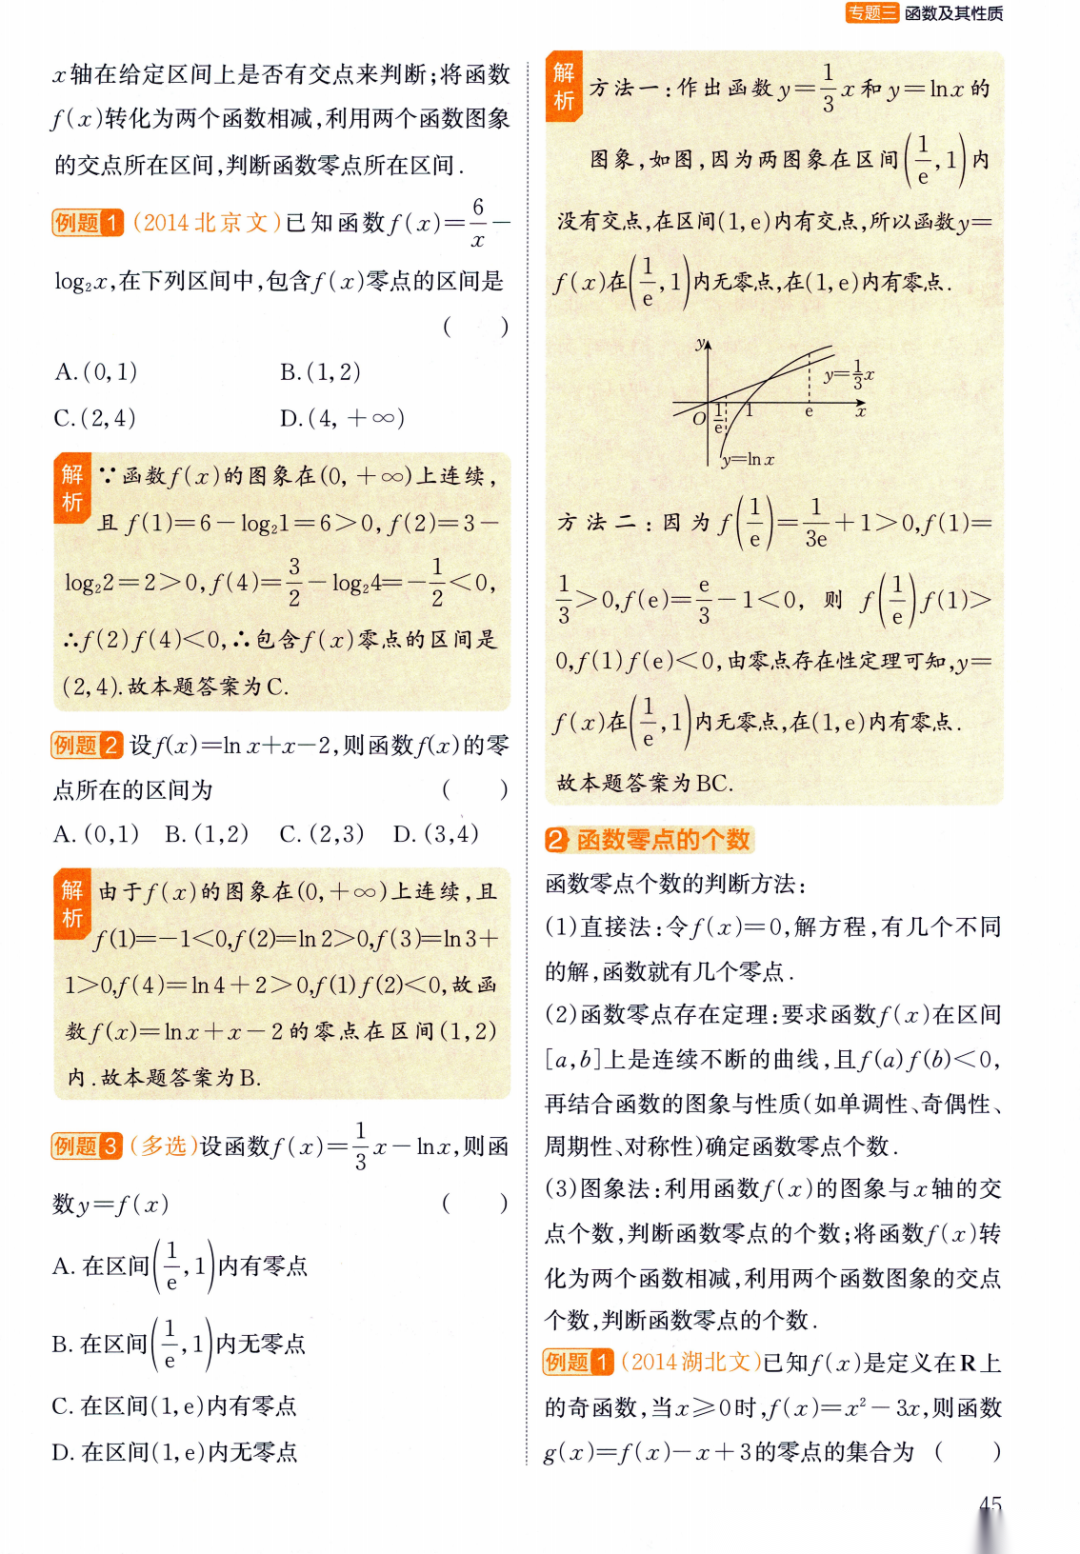 专题三 函数及其性质
x轴在给定区间上是否有交点来判断;将函数
f(x)转化为两个函数相减,利用两个函数图象
的交点所在区间,判断函数零点所在区间.
例题1 (2014北京文)已知函数f(x)=6/x-
log₂x,在下列区间中,包含f(x)零点的区间是
( )
A.(0,1) B.(1,2)
C.(2,4) D.(4,+∞)
解析 ∵函数f(x)的图象在(0,+∞)上连续,
且f(1)=6-log₂1=6>0,f(2)=3-
log₂2=2>0,f(4)=3/2-log₂4=-1/2<0,
∴f(2)f(4)<0,∴包含f(x)零点的区间是
(2,4).故本题答案为C.
例题2 设f(x)=ln x+x-2,则函数f(x)的零
点所在的区间为 ( )
A.(0,1) B.(1,2) C.(2,3) D.(3,4)
解析 由于f(x)的图象在(0,+∞)上连续,且
f(1)=-1<0,f(2)=ln2>0,f(3)=ln3+
1>0,f(4)=ln4+2>0,f(1)f(2)<0,故函
数f(x)=lnx+x-2的零点在区间(1,2)
内.故本题答案为B.
例题3 (多选)设函数f(x)=1/3x-lnx,则函
数y=f(x) ( )
A. 在区间(1/e,1)内有零点
B. 在区间(1/e,1)内无零点
C. 在区间(1,e)内有零点
D. 在区间(1,e)内无零点
解析 方法一:作出函数y=1/3x和y=lnx的
图象,如图,因为两图象在区间(1/e,1)内
没有交点,在区间(1,e)内有交点,所以函数y=
f(x)在(1/e,1)内无零点,在(1,e)内有零点.
y
y=1/3x
O 1/e 1 e x
y=lnx
方法二:因为f(1/e)=1/3e+1>0,f(1)=
1/3>0,f(e)=e/3-1<0,则f(1/e)f(1)>
0,f(1)f(e)<0,由零点存在性定理可知,y=
f(x)在(1/e,1)内无零点,在(1,e)内有零点.
故本题答案为BC.
2 函数零点的个数
函数零点个数的判断方法:
(1)直接法:令f(x)=0,解方程,有几个不同
的解,函数就有几个零点.
(2)函数零点存在定理:要求函数f(x)在区间
[a,b]上是连续不断的曲线,且f(a)f(b)<0,
再结合函数的图象与性质(如单调性、奇偶性、
周期性、对称性)确定函数零点个数.
(3)图象法:利用函数f(x)的图象与x轴的交
点个数,判断函数零点的个数;将函数f(x)转
化为两个函数相减,利用两个函数图象的交点
个数,判断函数零点的个数.
例题1 (2014湖北文)已知f(x)是定义在R上
的奇函数,当x≥0时,f(x)=x²-3x,则函数
g(x)=f(x)-x+3的零点的集合为 ( )
45